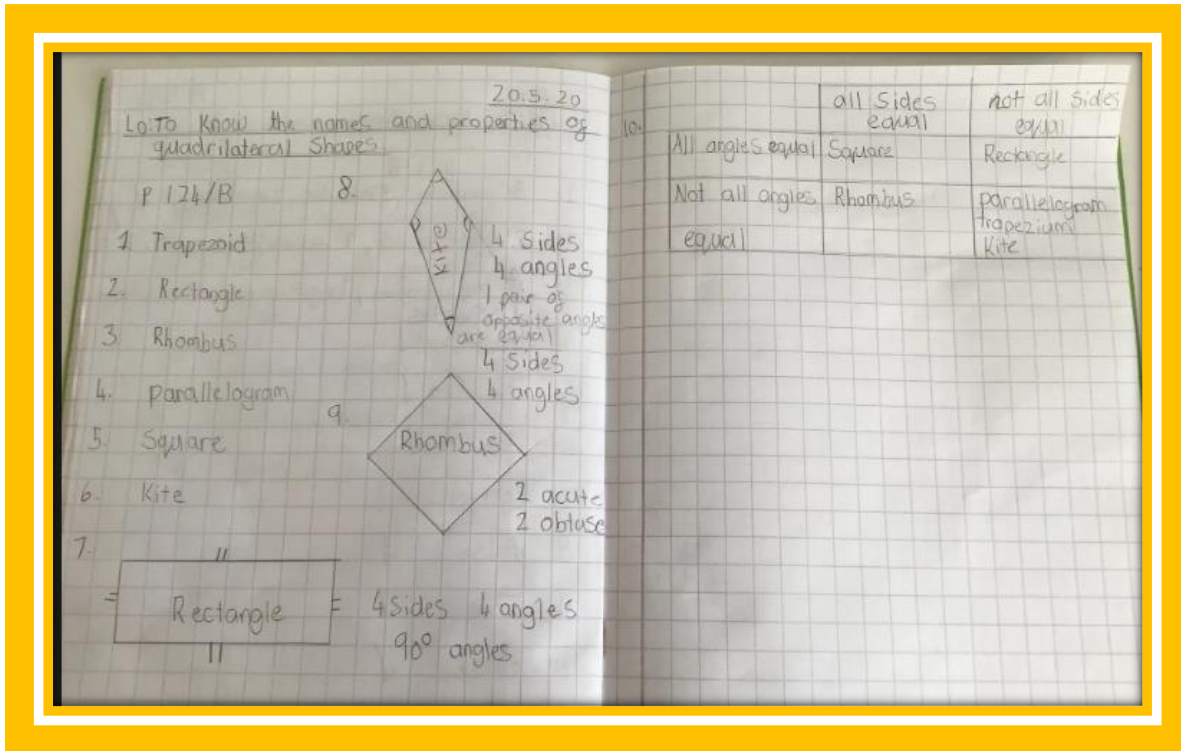 20.5.20
LO: To Know the names and properties of
quadrilateral Shapes.
P 124/B
1. Trapezoid
2. Rectangle
3. Rhombus
4. parallelogram
5. Square
6. Kite
7.
Rectangle
4 Sides 4 angles
90° angles
8.
Kite
4 Sides
4 angles
1 pair of
opposite angles
are equal
9.
Rhombus
4 Sides
4 angles
2 acute
2 obtuse
10.
all Sides not all sides
equal equal
All angles equal Square Rectangle
Not all angles Rhombus parallelogram
trapezium
equal Kite